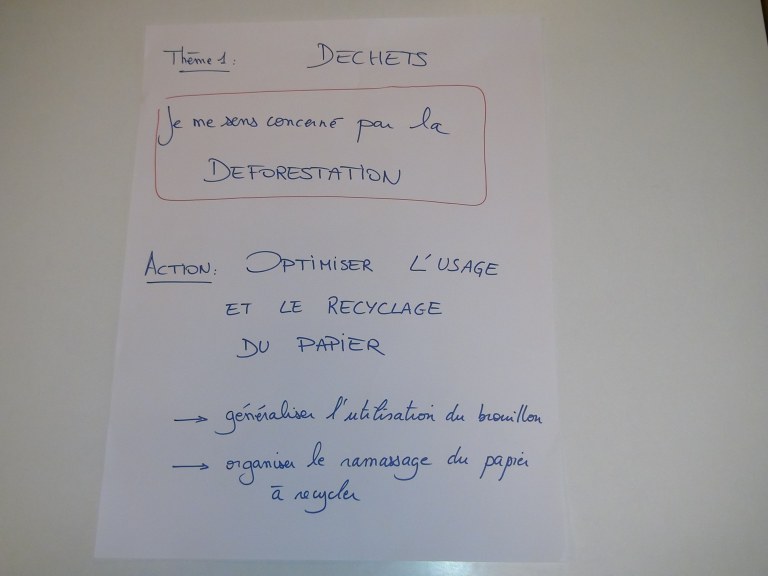 Thème 1: DECHETS
Je me sens concerné par la
DEFORESTATION
ACTION: OPTIMISER L'USAGE
ET LE RECYCLAGE
DU PAPIER
→ généraliser l'utilisation du brouillon
→ organiser le ramassage du papier
à recycler